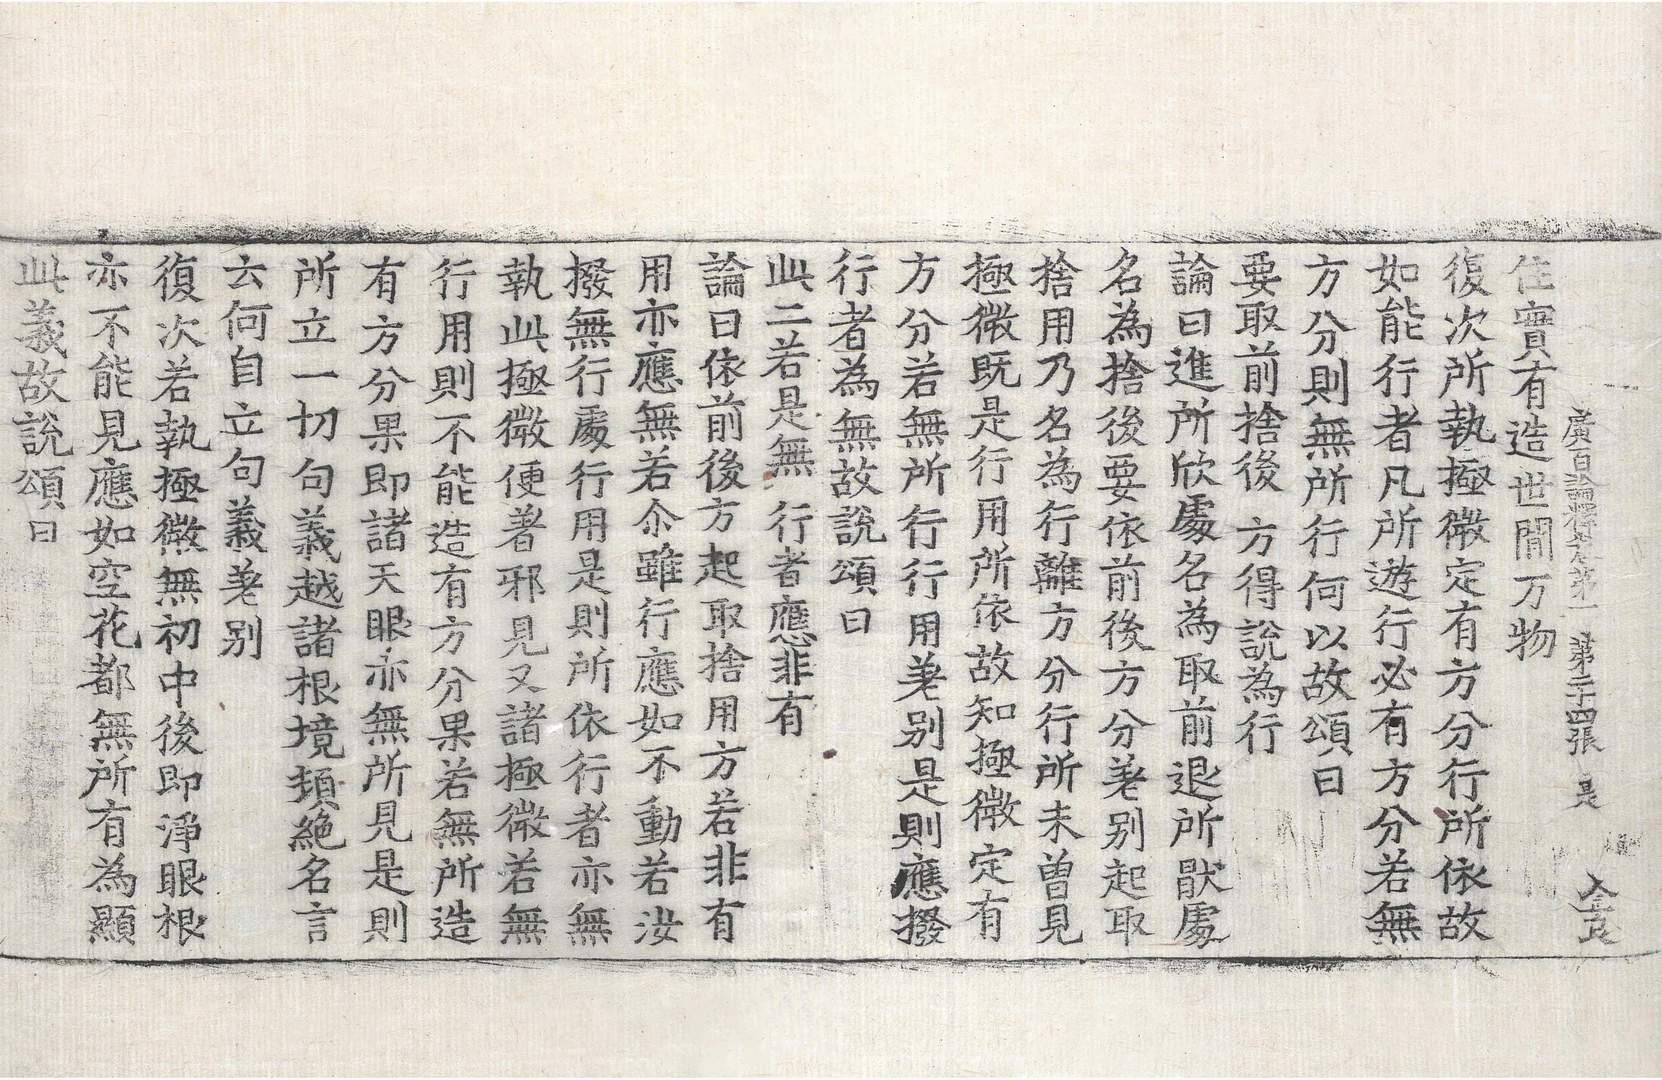 廣百論釋論卷第一 第二十四張 是
住實有造世閒万物
復次所執極微定有方分行所依故
如能行者凡所遊行必有方分若無
方分則無所行何以故頌曰
要取前捨後 方得說為行
論曰進所欣處名為取前退所猒處
名為捨後要依前後方分差别起取
捨用乃名為行離方分行所未曾見
極微既是行用所依故知極微定有
方分若無所行行用差别是則應撥
行者為無故說頌曰
此二若是無 行者應非有
論曰依前後方起取捨用方若非有
用亦應無若尒雖行應如不動若汝
撥無行處行用是則所依行者亦無
執此極微便著邪見又諸極微若無
行用則不能造有方分果若無所造
有方分果即諸天眼亦無所見是則
所立一切句義越諸根境頞絶名言
云何自立句義差别
復次若執極微無初中後即淨眼根
亦不能見應如空花都無所有為顯
此義故說頌曰